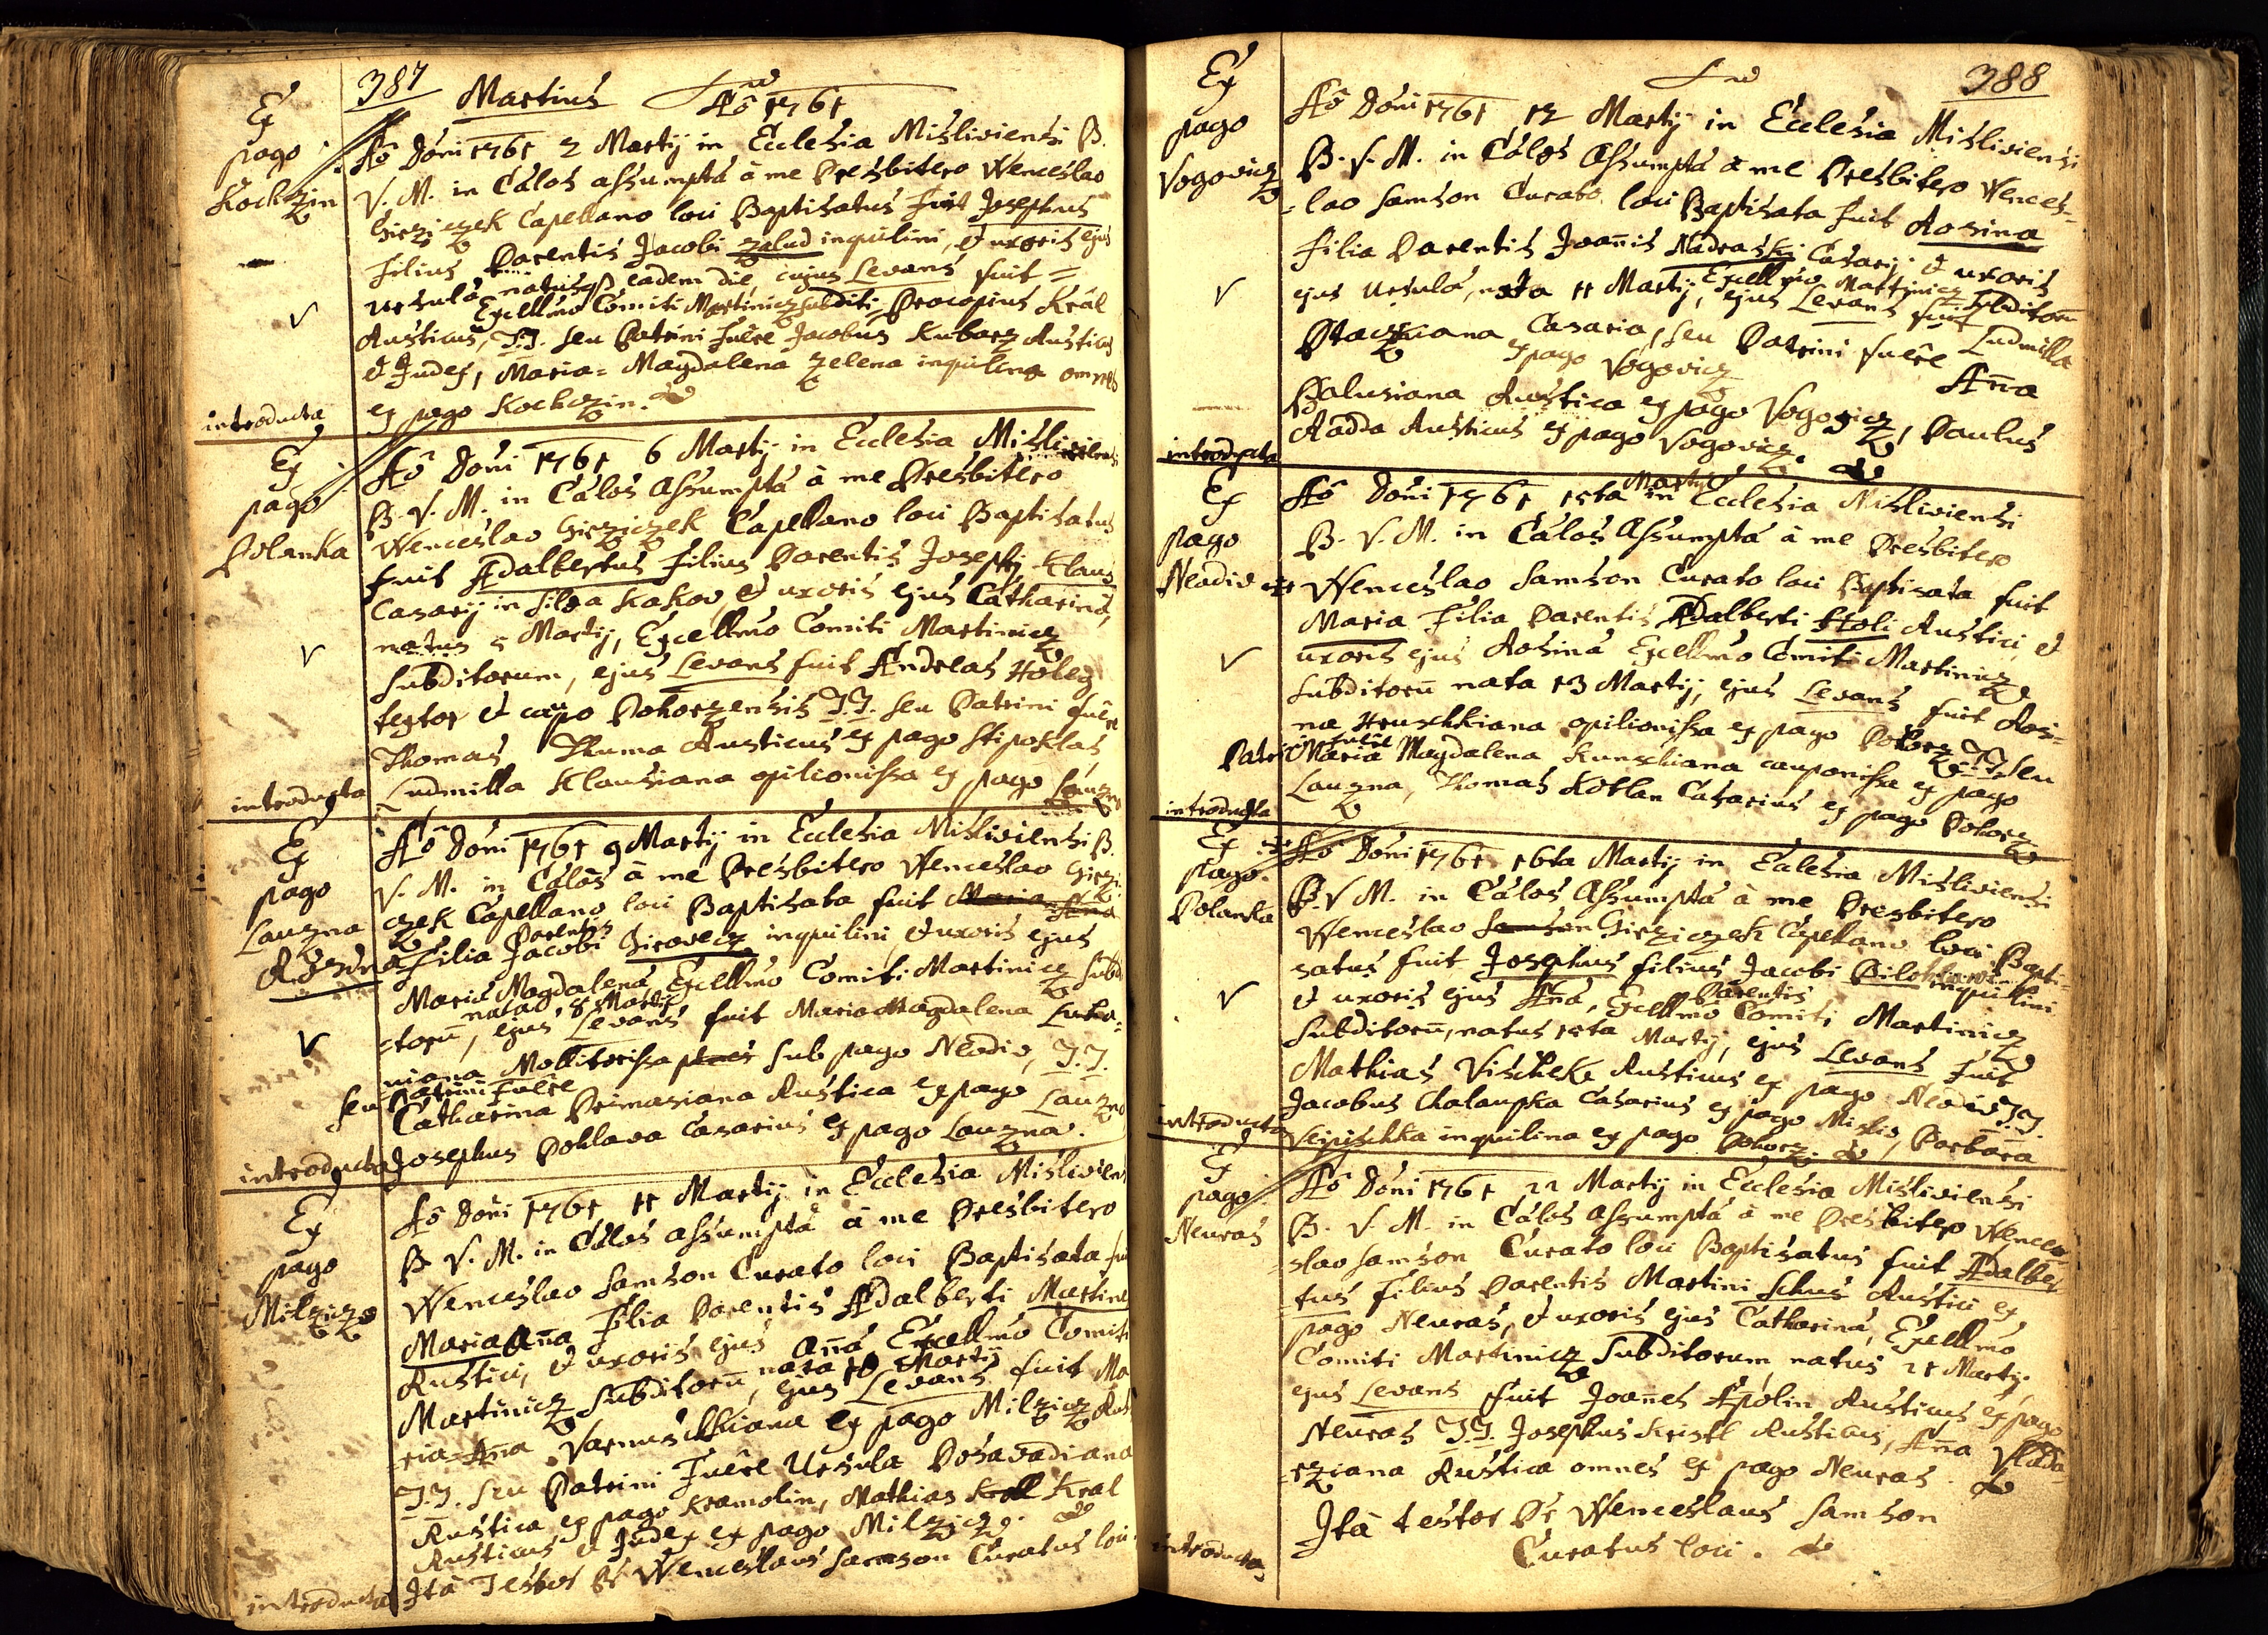 387 Martius Aô 1761
Ex
pago
Kockzin
Aô Dôni 1761 2 Martij in Ecclesia Misliviensi B.
V. M. in Cálos assumptá à me Presbitero Wenceslao
Girziczek Capellano loci Baptisatus fuit Josephus
Filius Parentis Jacobi zalud inquilini, et uxoris ejus
Ursulá, natus eadem die, cujus Levans fuit =
Excellmo Comiti Martinicz subditi Procopius Král
Rusticus, T.T. seu Patrini fuêre Jacobus Kubarz Rusticus
et Judex, Maria = Magdalena zelena inquilina omnes
ex pago Kockzin.
introducta
Ex
pago
Polanka
Aô Dôni 1761 6 Martij in Ecclesia Misliviensi
B. V. M. in Cálos Assumptá à me Presbitero
Wenceslao Girziczek Capellano loci Baptisatus
fuit Adalbertus Filius Parentis Josephi Klaus
Casarij in Silva Kakov, et uxoris ejus Catharina,
natus 5 Martij, Excellmo Comiti Martinicz
Subditorum, ejus Levans fuit Andreas Holeg
textor et caupo Pohorzensis T.T. seu Patrini fuêre
Thomas Thuma Rusticus ex pago Stipoklas,
Ludmilla Klausiana opilionissa ex pago Lauzna
introducta
Ex
pago
Lauzna
Rosina
Aô Dôni 1761 9 Martij in Ecclesia Misliviensi B.
V. M. in Cálos à me Presbitero Wenceslao Girzi-
czek Capellano loci Baptisata fuit Maria Anna
Parentis
Filia Jacobi Girovecz inquilini, et uxoris ejus
Mariá Magdalená, Excellmo Comiti Martinicz Subdi
nata 8 Martij
=torū, ejus Levans fuit Maria Magdalena Luka=
niana Mollitorissa sub pago Neodiv, T.T.
seu Patrini fuêre
Catharina Primasiana Rustica ex pago Lauzna
Josephus Pohlava Casarius ex pago Lauzna.
introducta
Ex
pago
Milziczo
Aô Dôni 1761 11 Martij in Ecclesia Mislivien
B. V. M. in Cálos assumptá à me Presbitero
Wenceslao Samson Curato loci Baptisata fu
Maria Aña Filia Parentis Adalberti Martine
Rustici, et uxoris ejus Aña Excellmo Comiti
nata 10 Martij
Martinicz Subditorū, ejus Levans fuit Ma
=ria=Aña Varmuschkiana ex pago Milzicz Rus
T.T. seu Patrini Fuêre Ursula Posavadiana
Rustica ex pago Kramolin, Mathias Kroll Kral
Rusticus et Judex ex pago Milziczo.
Ità Testor Pr Wenceslaus Samson Curatus loci.
introducta
388
Ex
pago
Vogovicz
Aô Dôni 1761 12 Martij in Ecclesia Misliviensi
B. V. M. in Cálos Assumptá à me Presbitero Wences=
=lao Samson Curato loci Baptisata fuit Rosina
Filia Parentis Joañis Nadraski Casarij, et uxoris
ejus Ursulá, nata 11 Martij, Excellmo Martinicz Subditorū
ejus Levans fuit Ludmilla
Ptacznana Casaria, seu Patrini fuêre Aña
ex pago Vogovicz
Palusiana Rustica ex pago Vogovicz, Paulus
Radda Rusticus ex pago Vogovicz.
introducta
Ex
pago
Neodiv
Martij
Aô Dôni 1761 15ta in Ecclesia Misliviensi
B. V. M. in Cálos Assumptá à me Presbitero
Wenceslao Samson Curato loci Baptisata fuit
Maria Filia Parentis Adalberti Holi Rustici, et
uxoris ejus Rosiná Excellmo Comiti Martinicz
Subditorū nata 13 Martij, ejus Levans fuit Rosi=
na Hruschkiana opilionissa ex pago Pohorz T.T. seu
Patrini fuêre
Maria Magdalena Kunschiana cauponissa ex pago
Lauzna, Thomas Kotlan Casarius ex pago Pohorz
introducta
Ex
pago
Polanka
Aô Dôni 1761 16ta Martij in Ecclesia Misliviensi
B. V. M. in Cálos Assumptá à me Presbitero
Wenceslao Samson Girziczek Capellano loci Bapti=
satus fuit Josephus filius Jacobi inquilini
Parentis
et uxoris ejus Aña, Excellmo Comiti Martinicz
Subditorū, natus 15ta Martij, ejus Levans fuit
Mathias Vischek Rusticus ex pago Neodiv T.T.
Jacobus Chalaupka Casarius ex pago Misliv, Barbara
Vejpischka inquilina ex pago Pohorz.
introducta
Ex
pago
Neuras
Aô Dôni 1761 22 Martij in Ecclesia Misliviensi
B. V. M. in Cálos Assumptá à me Presbitero Wence
=slao Samson Curato loci Baptisatus fuit Adalber
=tus Filius Parentis Martini Schus Rustici ex
pago Neuras, et uxoris ejus Catharina, Excellmo
Comiti Martinicz Subditorum natus 21 Martij.
ejus Levans fuit Joañes Apolin Rusticus ex pago
Neuras T.T. Josephus Kristl Rusticus, Aña Vlada=
=rziana Rustica omnes ex pago Neuras.
Ità testor Pr Wenceslaus Samson
Curatus loci.
introducta